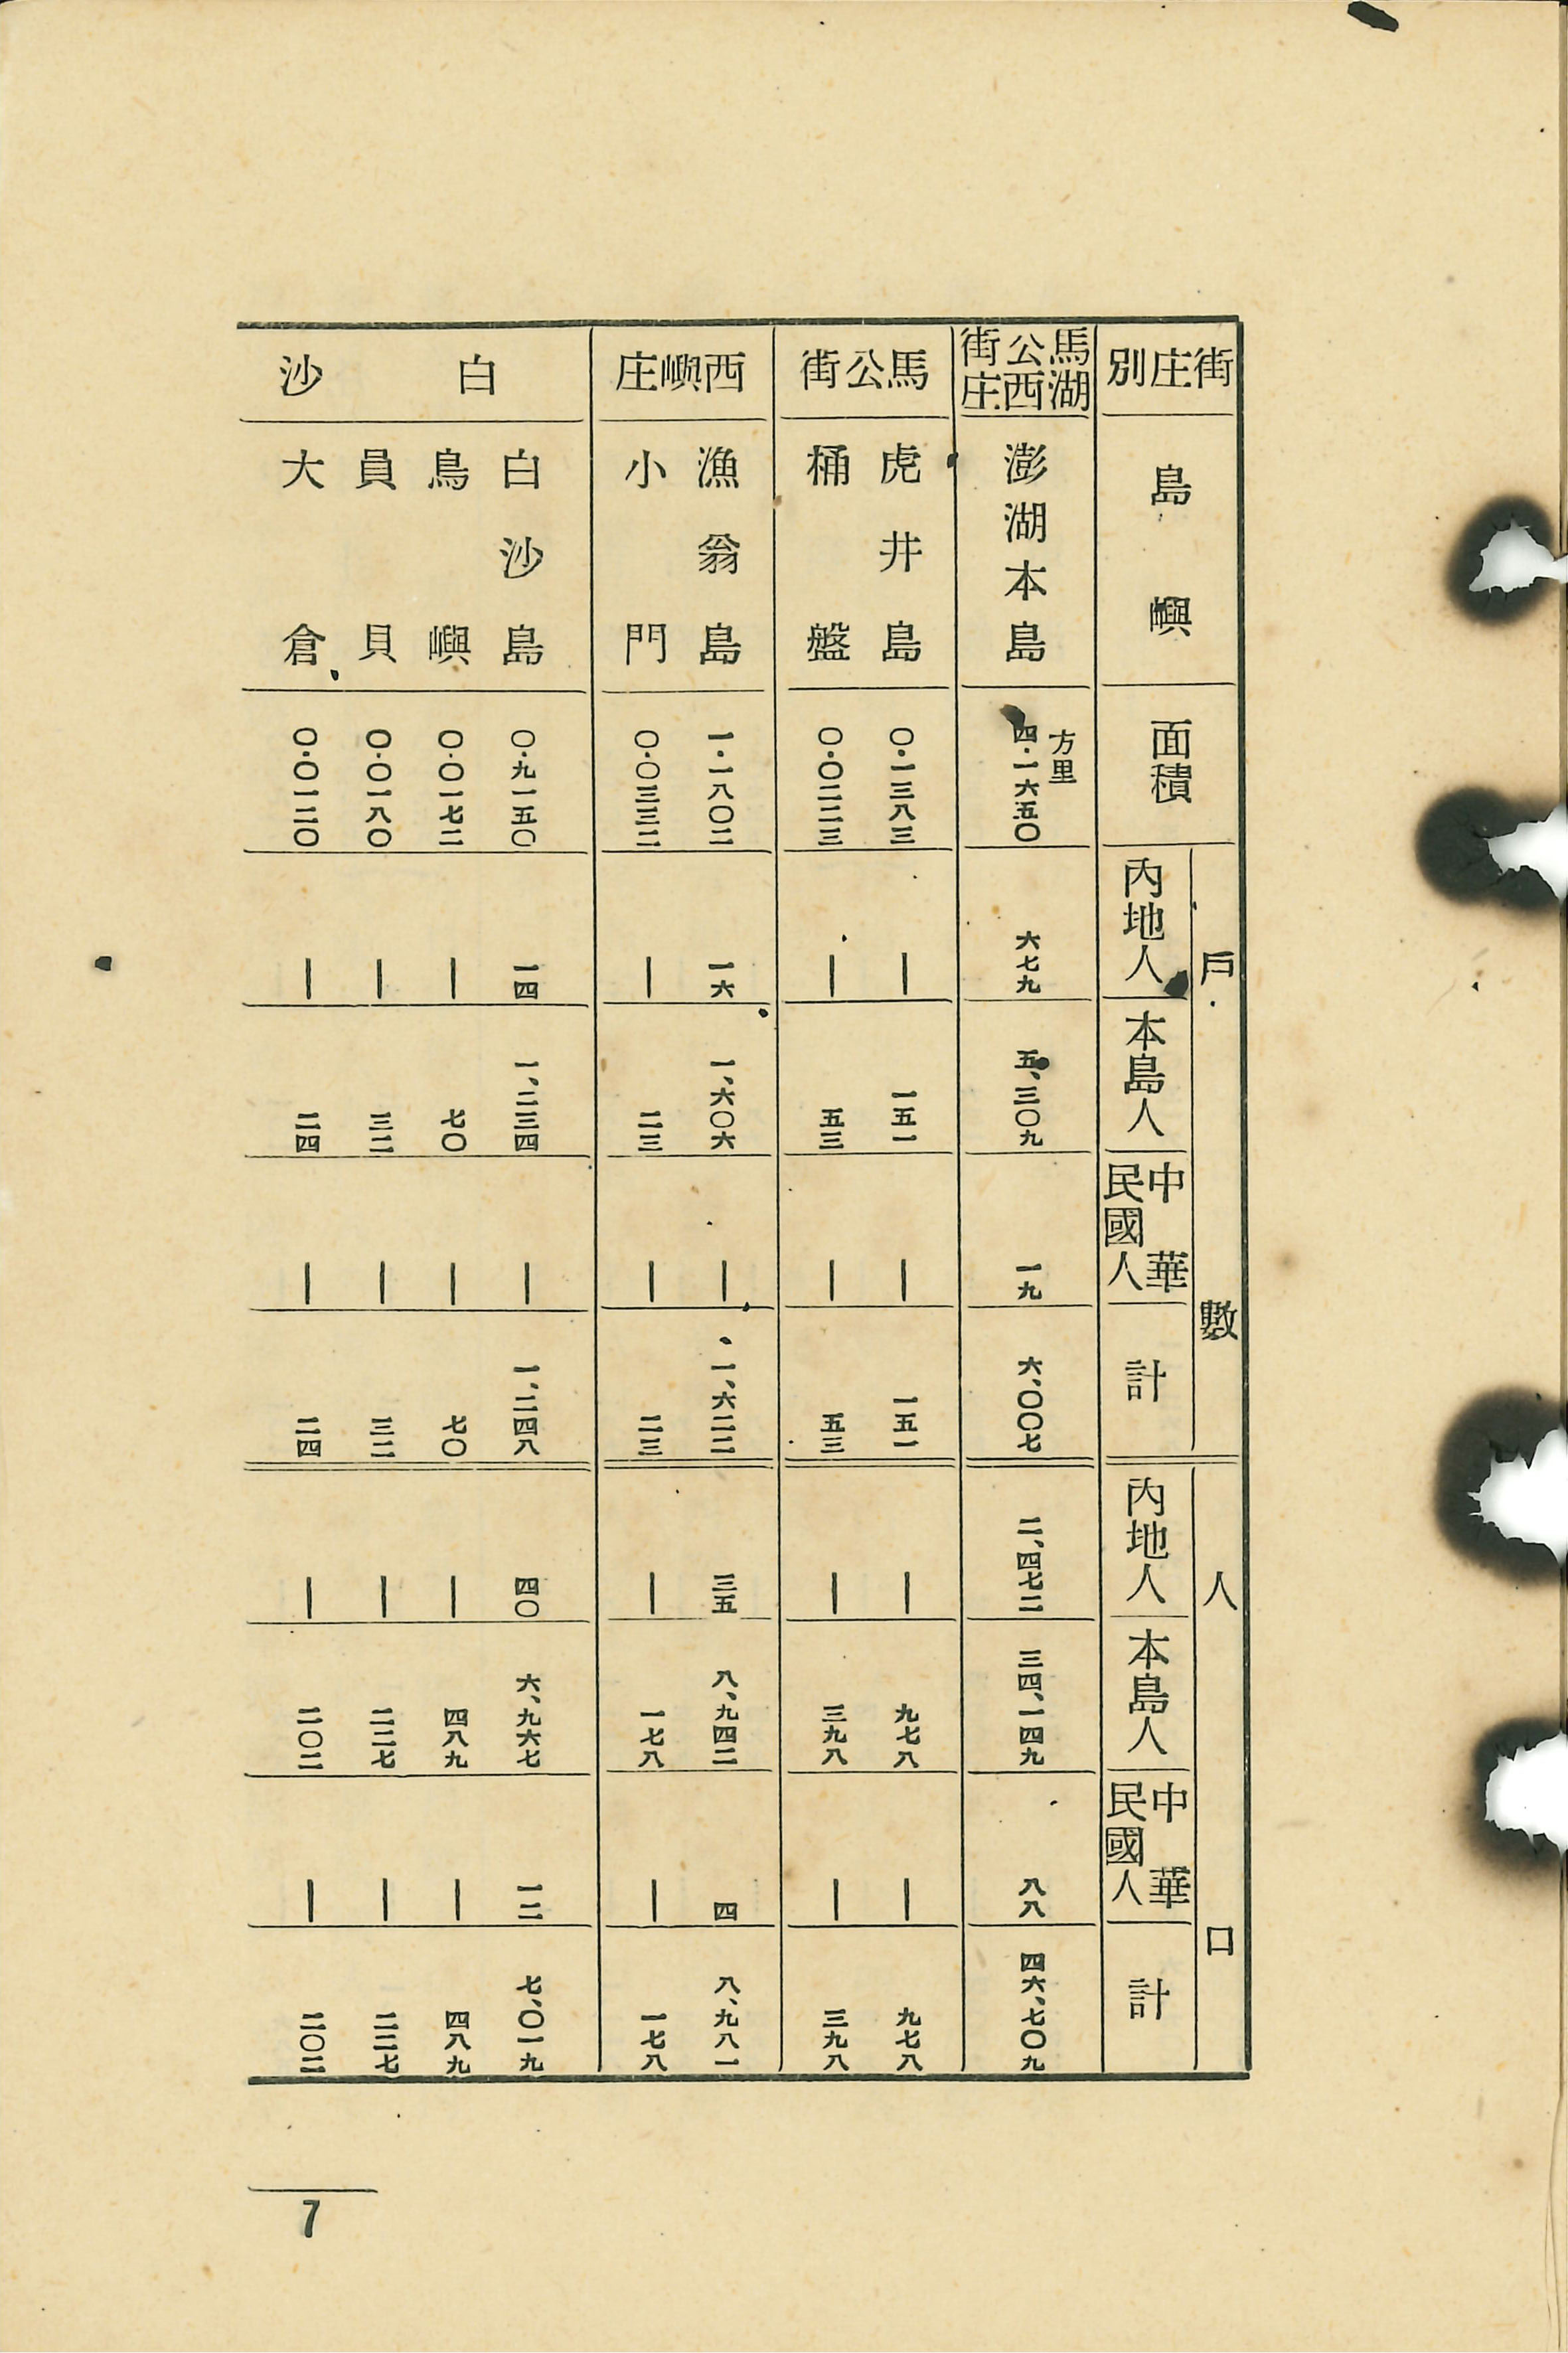 街庄別 島嶼 面積 戶數 內地人 本島人 中華民國人 計 人口 內地人 本島人 中華民國人 計
馬公街湖西庄 澎湖本島 方里 四・一六五〇 六七九 五、三〇九 一九 六、〇〇七 二、四七二 三四、一四九 八八 四六、七〇九
馬公街 虎井島 〇・一三八三 ― 一五一 ― 一五一 ― 九七八 ― 九七八
桶盤 〇・〇二二三 ― 五三 ― 五三 ― 三九八 ― 三九八
西嶼庄 漁翁島 一・一八〇二 一六 一、六〇六 ― 一、六二二 三五 八、九四二 四 八、九八一
小門 〇・〇三三二 ― 二三 ― 二三 ― 一七八 ― 一七八
白沙 白沙島 〇・九一五〇 一四 一、二三四 ― 一、二四八 四〇 六、九六七 一二 七、〇一九
鳥嶼 〇・〇一七二 ― 七〇 ― 七〇 ― 四八九 ― 四八九
員貝 〇・〇一八〇 ― 三二 ― 三二 ― 二二七 ― 二二七
大倉 〇・〇一二〇 ― 二四 ― 二四 ― 二〇二 ― 二〇二
7